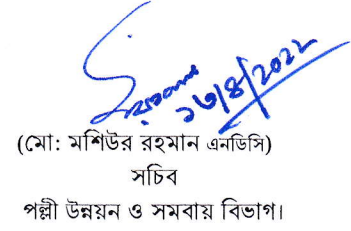 ১৩/৪/২০২২
(মো: মশিউর রহমান এনডিসি)
সচিব
পল্লী উন্নয়ন ও সমবায় বিভাগ।